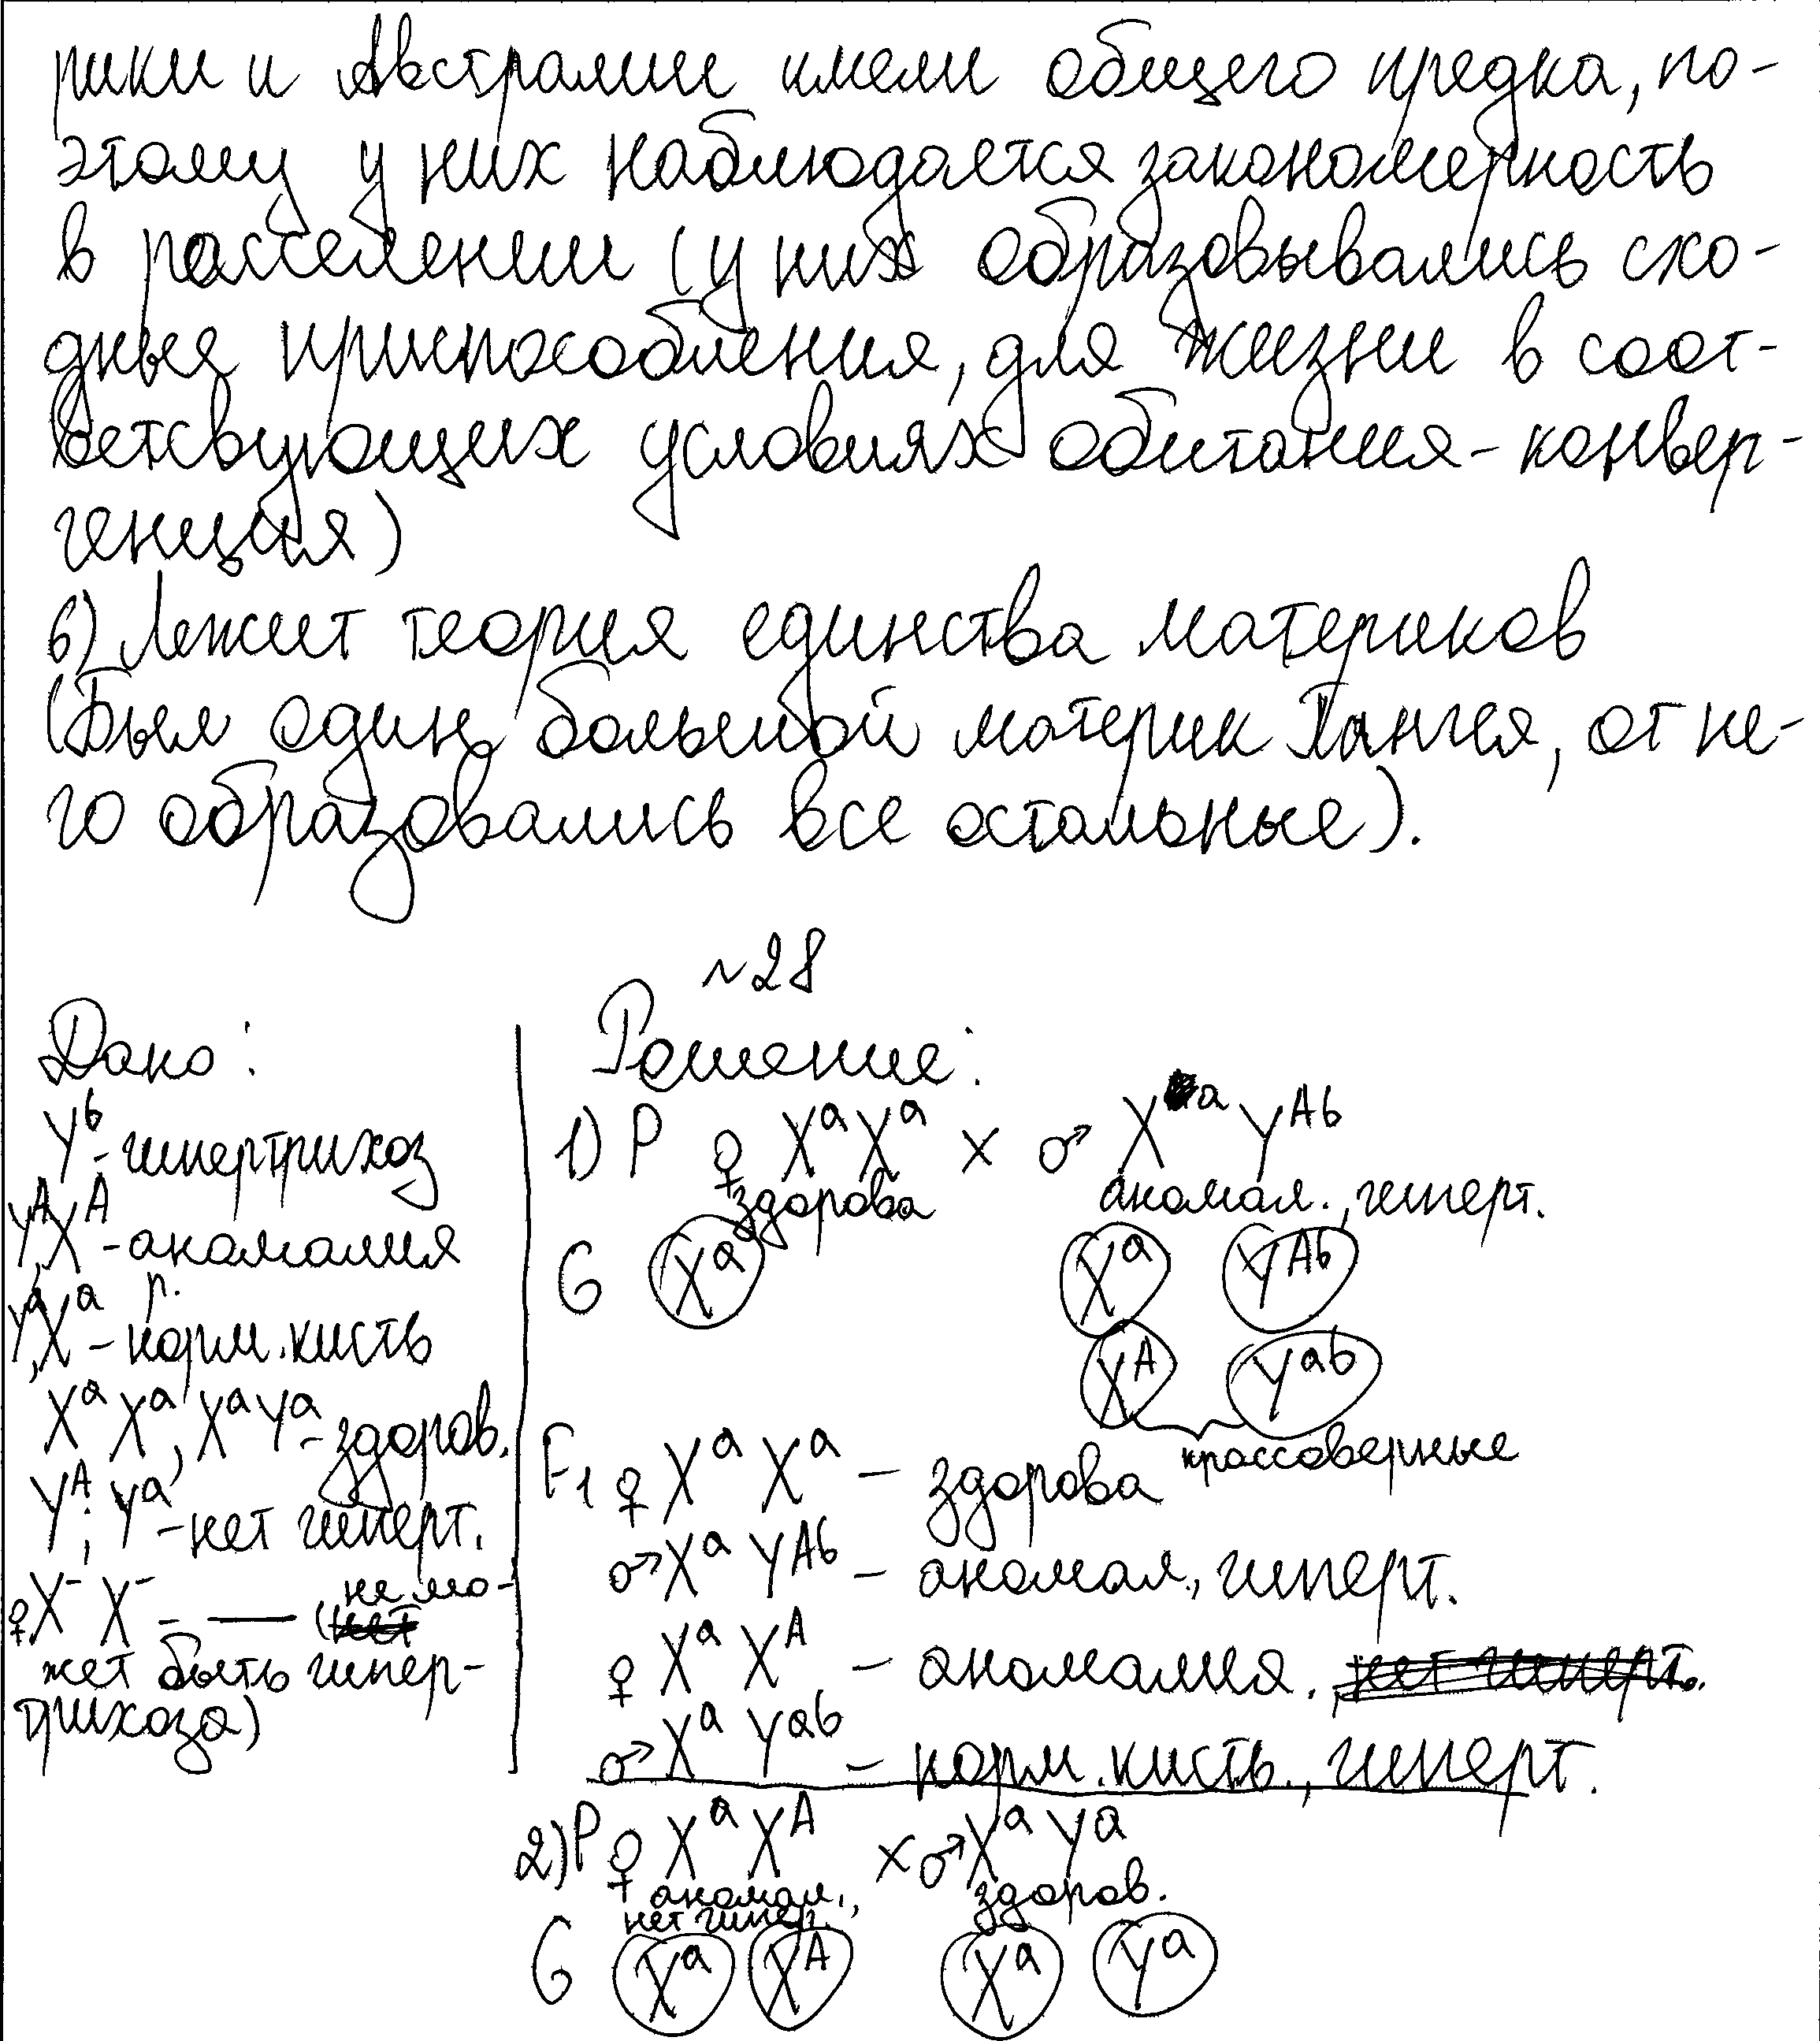 рики и Австралии имели общего предка, по-
этому у них наблюдается закономерность
в расселении (у них образовывались схо-
дные приспособления, для жизни в соот-
ветсвующих условиях обитания - конвер-
генция)
6) Лежит теория единства материков
(Был один большой материк Пангея, от не-
го образовались все остальные).
~28
Дано:
Y^b - гипертрихоз
Y^A, X^A - аномалия р.
Y^a, X^a - норм. кисть
X^a X^a, X^a Y^a - здоров.
Y^A; Y^a - нет гиперт.
♀X^- X^- - — (не мо-
жет быть гипер-
трихоза)
Решение:
1) P ♀ X^a X^a x ♂ X^a Y^Ab
здорова аномал., гиперт.
G X^a X^a Y^Ab
X^A Y^ab
кроссоверные
F1 ♀ X^a X^a - здорова
♂ X^a Y^Ab - аномал., гиперт.
♀ X^a X^A - аномалия.
♂ X^a Y^ab - норм. кисть., гиперт.
2) P ♀ X^a X^A x ♂ X^a Y^a
аномал., здоров.
нет гипер.
G X^a X^A X^a Y^a